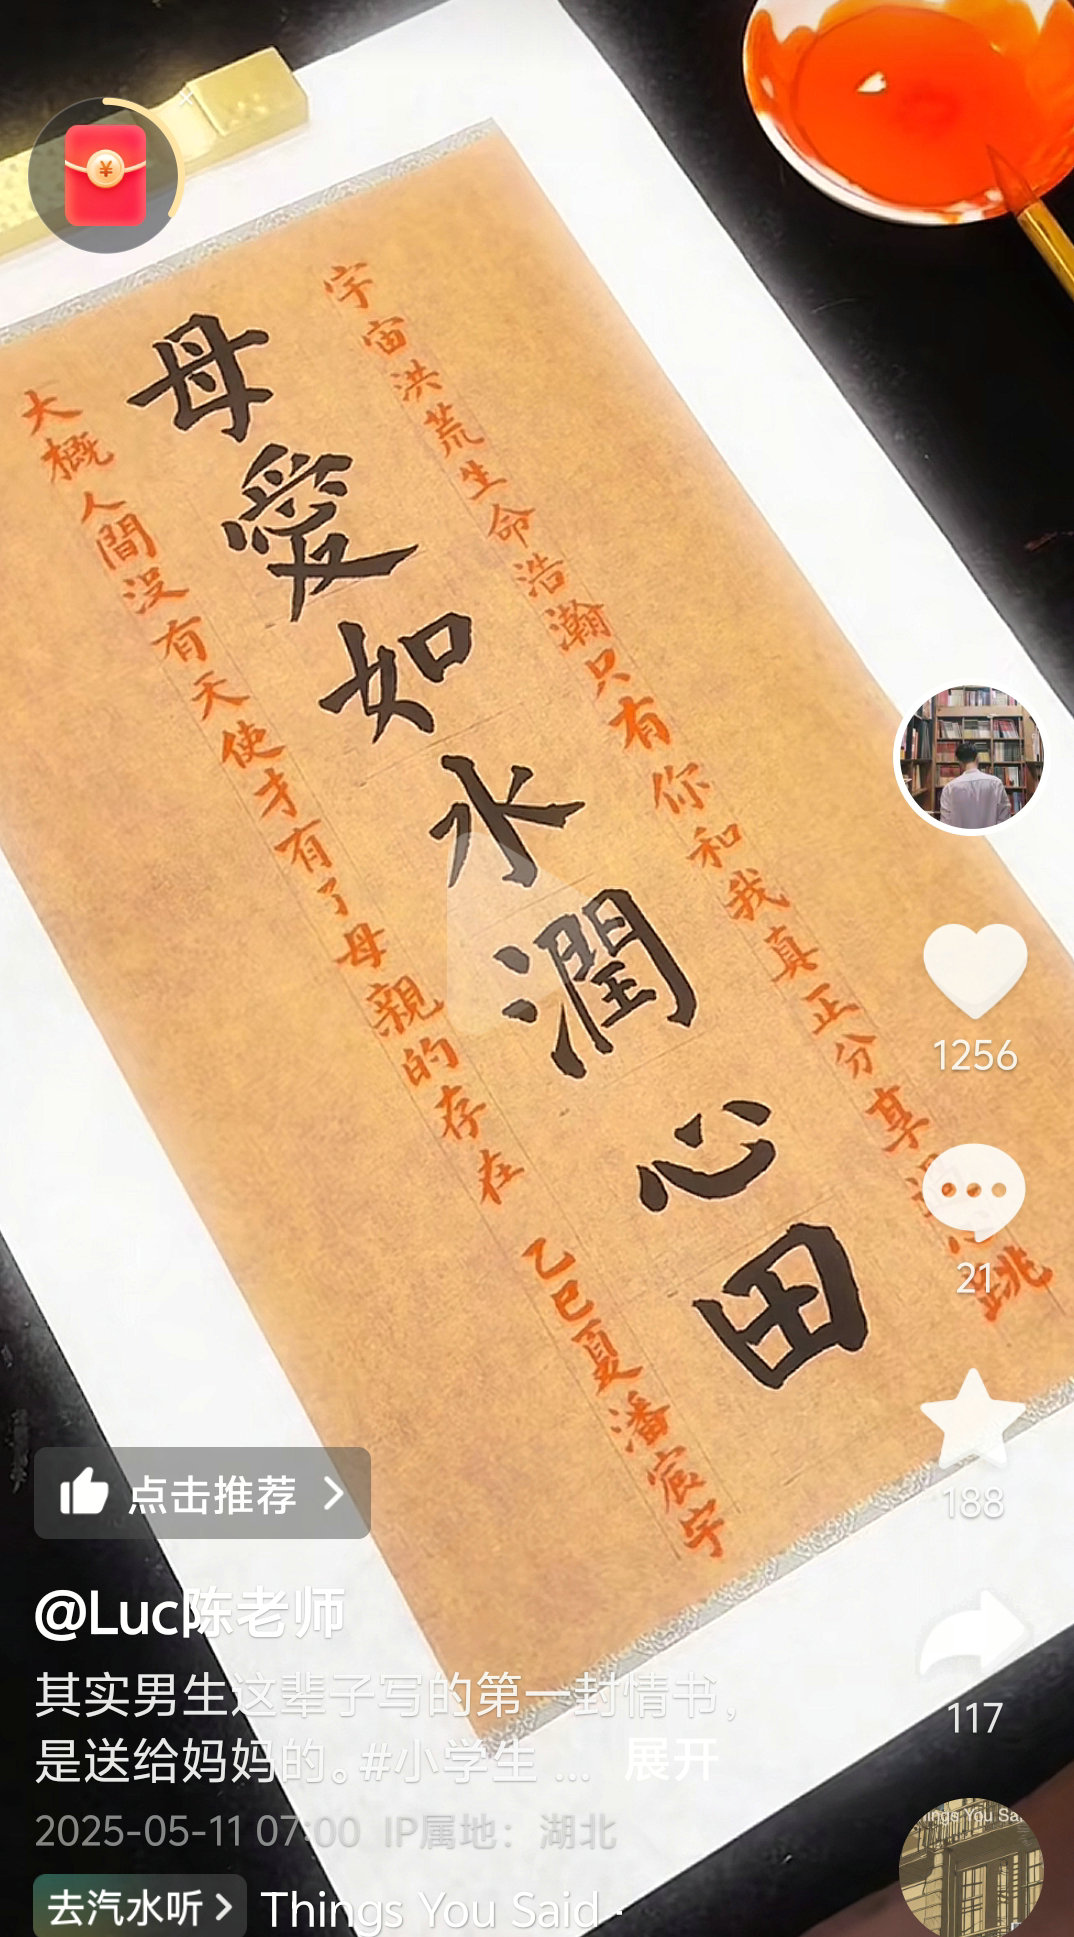 宇宙洪荒生命浩瀚只有你和我真正分享
跳
母愛如水潤心田
大概人間沒有天使才有了母親的存在
乙巳夏潘宸宇
1256
21
188
117
点击推荐
@Luc陈老师
其实男生这辈子写的第一封情书，
是送给妈妈的。#小学生 ... 展开
2025-05-11 07:00 IP属地：湖北
去汽水听
Things You Said ·